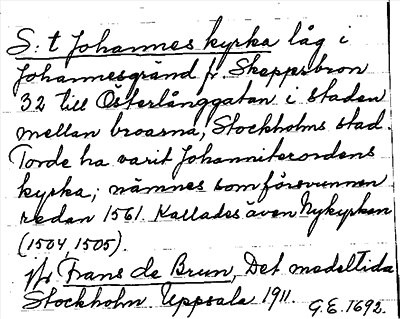 S:t Johannes kyrka låg i
Johannesgränd fr Skeppsbron
32 till Österlånggatan i staden
mellan broarna, Stockholms stad.
Torde ha varit Johanniterordens
kyrka; nämnes som försvunnen
redan 1561. Kallades även Nykyrkan
(1504, 1505).
Frans de Brun, Det medeltida
Stockholm. Uppsala 1911.
G.E. 1692.